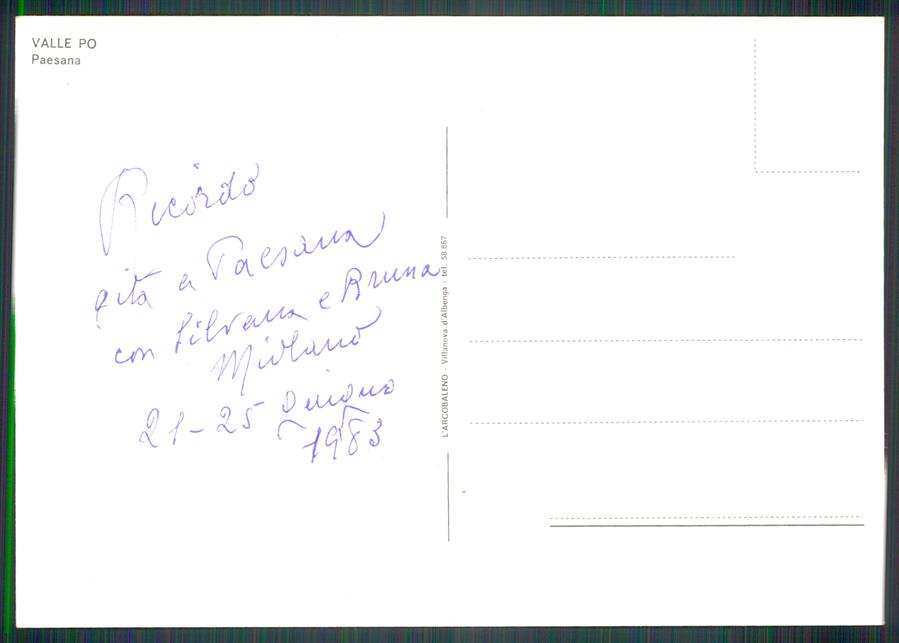 VALLE PO
Paesana
Ricordo
gita a Paesana
con Silvana e Bruna
21-25 Giugno
1983
L'ARCOBALENO - Villanova d'Albenga - tel. 58.867